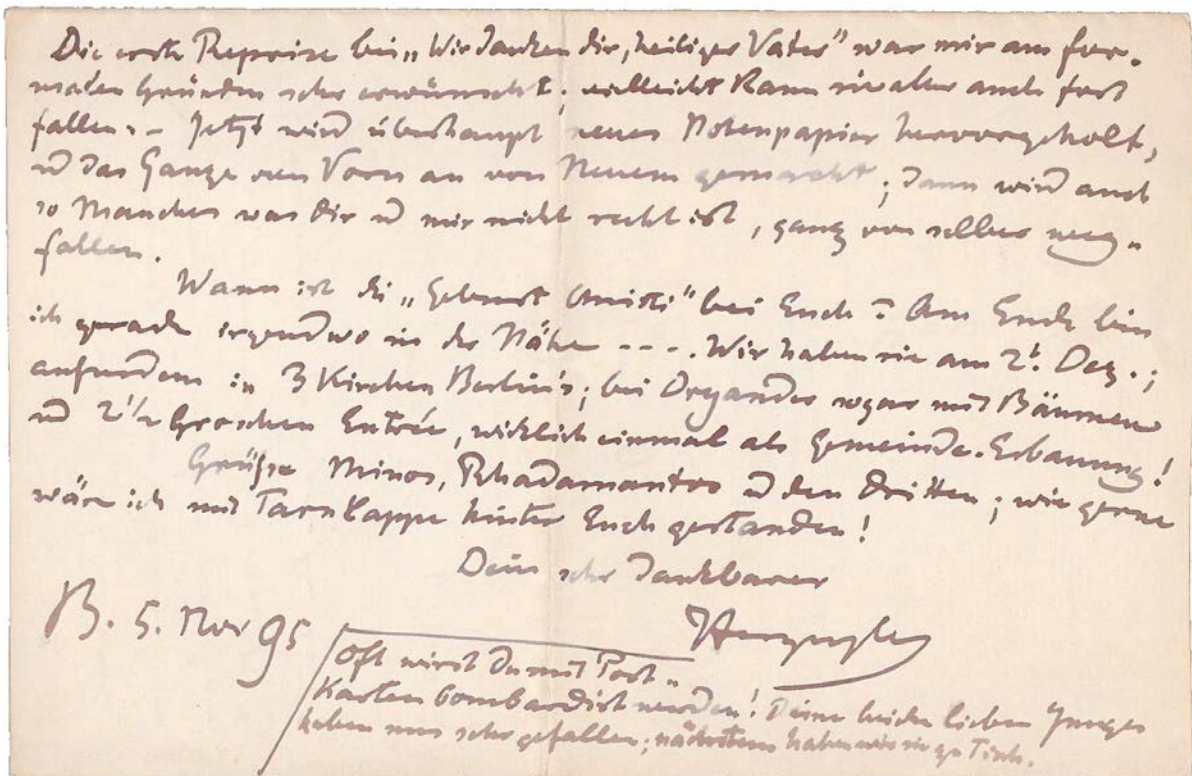 Die erste Reprise bei „Wir danken dir, heiliger Vater" war mir aus for-
malen Gründen sehr erwünscht; vielleicht kann sie aber auch fort
fallen. – Jetzt wird überhaupt neues Notenpapier hervorgeholt,
u das Ganze von Vorn an von Neuem gemacht; dann wird auch
so Manches was dir u mir nicht recht ist, ganz von selber weg-
fallen.
Wann ist die „Geburt Christi" bei Euch? Am Ende bin
ich gerade irgendwo in der Nähe ----. Wir haben sie am 2t. Dez.;
außerdem in 3 Kirchen Berlin's; bei Dryander sogar mit Bäumen
u 2 1/2 Groschen Entrée, wirklich einmal als Gemeinde-Erbauung!
Grüße Minos, Rhadamantos u den Dritten; wie gerne
wäre ich mit Tarnkappe hinter Euch gestanden!
Dein sehr dankbarer
B. 5. Nov 95
Herzogbg
Oft wirst Du mit Post-
Karten bombardirt werden! Deine beiden lieben Jungen
haben uns sehr gefallen; nächstens haben wir sie zu Tisch.